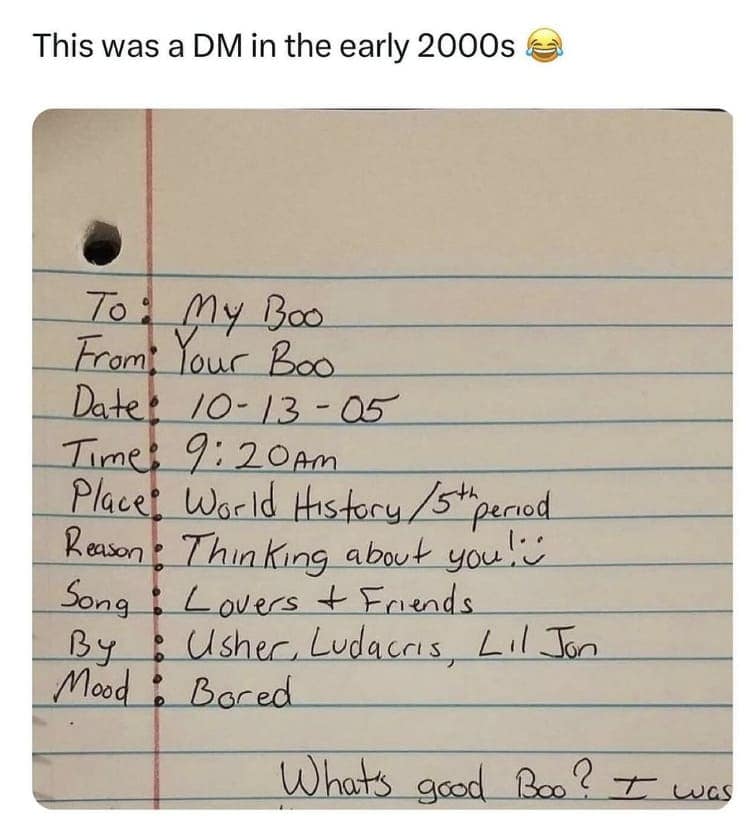 This was a DM in the early 2000s 😂
To: My Boo
From: Your Boo
Date: 10-13-05
Time: 9:20AM
Place: World History/5th period
Reason: Thinking about you! ü
Song: Lovers + Friends
By: Usher, Ludacris, Lil Jon
Mood: Bored
What's good Boo? I was